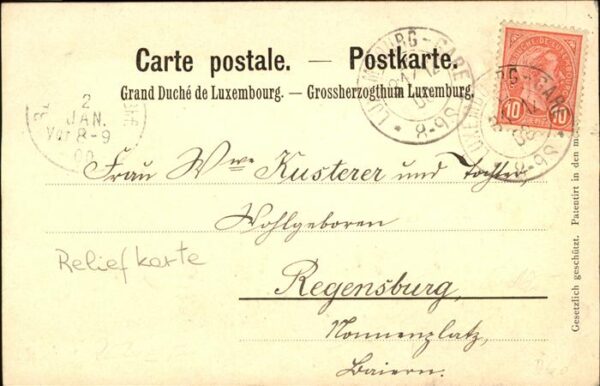 Carte postale. — Postkarte.
Grand Duché de Luxembourg. — Grossherzogthum Luxemburg.
LUXEMBOURG-GARE
8-9S
LUXEMBOURG-GARE
8-9S
10 10
2
JAN.
Vor 8-9
00
Frau Wwe Kusterer und Tochter,
Wohlgeboren
Reliefkarte
Regensburg,
Nonnenplatz,
Baiern.
Gesetzlich geschützt. Patentirt in den